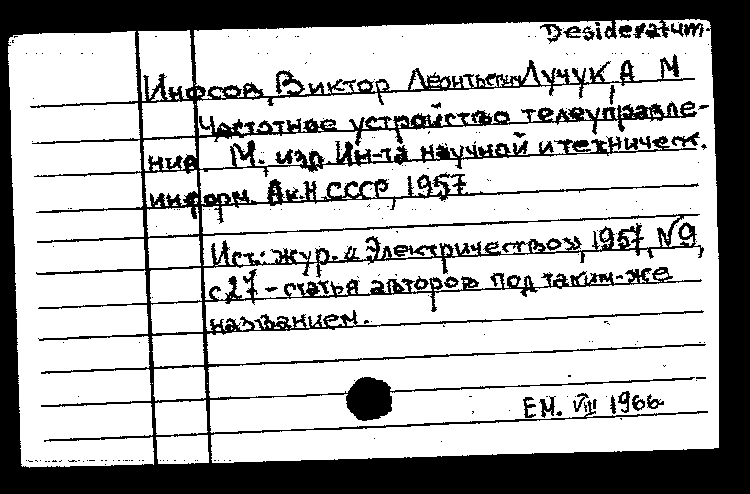 Desideratum.
Инфсов, Виктор Леонтьевич Лучук, А М
Частотное устройство телеуправле-
ния. М., изд. Ин-та научной и техническ.
информ. Ак.Н. СССР, 1957
Ист.: жур. «Электричество», 1957, №9,
с 27 - статья авторов под таким-же
названием.
ЕМ. VIII 1966